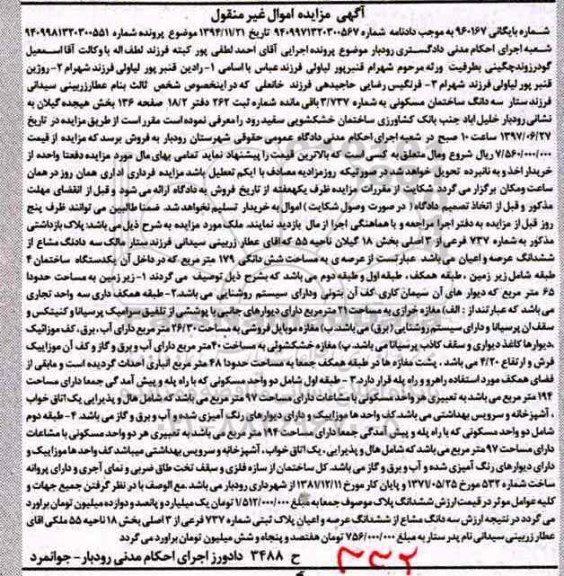 آگهی مزایده اموال غیر منقول
شماره بایگانی ۹۶۰۱۶۷ به موجب دادنامه شماره ۹۴۰۹۹۷۱۳۲۰۳۰۰۵۶۷ تاریخ ۱۳۹۴/۱۱/۲۱ موضوع پرونده شماره ۹۴۰۹۹۸۱۳۲۰۳۰۰۵۵۱
شعبه اجرای احکام مدنی دادگستری رودبار موضوع پرونده اجرایی آقای احمد لطفی پور کپته فرزند لطف اله با وکالت آقا اسمعیل
گودرزوندچگینی بطرفیت ورثه مرحوم شهرام قنبرپور لیاولی فرزند عباس با اسامی ۱- رادین قنبر پور لیاولی فرزند شهرام ۲- روژین
قنبر پور لیاولی فرزند شهرام ۳- فرنگیس رضایی حاجیدهی فرزند خانعلی که در اینخصوص شخص ثالث بنام عطار زربینی سیدانی
فرزند ستار سه دانگ ساختمان مسکونی به شماره ۳/۷۳۷ باقی مانده شماره ثبت ۲۶۲ دفتر ۱۸/۲ صفحه ۱۳۶ بخش هیجده گیلان به
نشانی رودبار خلیل اباد جنب بانک کشاورزی ساختمان خشکشویی سفید رود را معرفی نموده است مقرر است از طریق مزایده در تاریخ
۱۳۹۷/۰۶/۲۷ ساعت ۱۰ صبح در شعبه اجرای احکام مدنی دادگاه عمومی حقوقی شهرستان رودبار به فروش برسد که مزایده از قیمت
۷/۵۶۰/۰۰۰/۰۰۰ ریال شروع ومال متعلق به کسی است که بالاترین قیمت را پیشنهاد نماید تمامی بهای مال مورد مزایده دفعتا واحده از
خریدار اخذ و به نامبرده تحویل خواهد شد در صورتیکه روزمزایده مصادف با ایکم تعطیل باشد مزایده فردای اداری همان روز در همان
ساعت ومکان برگزار می گردد شکایت از مقررات مزایده ظرف یکهفته از تاریخ فروش به دادگاه ارائه می شود و قبل از انقضای مهلت
مذکور و قبل از اتخاذ تصمیم دادگاه ( در صورت وصول شکایت ) اموال به خریدار تسلیم نخواهد شد. ضمنا طالبین می توانند ظرف پنج
روز قبل از مزایده به دفتر اجرا مراجعه و با هماهنگی اجرا از مال بازدید نمایند. ملک مورد مزایده به شرح ذیل می باشد: پلاک بازداشتی
مذکور به شماره ۷۳۷ فرعی از ۳ اصلی بخش ۱۸ گیلان ناحیه ۵۵ که اقای عطار زربینی سیدانی فرزند ستار مالک سه دانگ مشاع از
ششدانگ عرصه و اعیان می باشد عبارتست از عرصه ی به مساحت شش دانگی ۱۷۹ متر مربع که در داخل آن یکدستگاه ساختمان ۴
طبقه شامل زیر زمین ، طبقه همکف ، طبقه اول و طبقه دوم می باشد که بشرح ذیل توصیف می گردند ۱- زیر زمین به مساحت حدودا
۶۵ متر مربع که دیوار های آن سیمان کاری کف آن بتونی ودارای سیستم روشنایی می باشد.۲- طبقه همکف داری سه واحد تجاری
می باشد که عبارتند از : الف) مغازه خرازی به مساحت ۲۱ مترمربع دارای دیوارهای جانبی با پوششی از تلفیق سرامیک پرسیانا و کنیتکس و
سقف ان پرسیانا و دارای سیستم روشنایی (برق) می باشد. ب) مغازه موبایل فروشی به مساحت ۲۶/۳۰ متر مربع دارای آب ، برق ، کف موزائیک
،دیوارها کاغذ دیواری و سقف کاذب پرسیانا می باشد. پ) مغازه خشکشوئی به مساحت ۴۰ متر مربع دارای آب و برق و گاز و کف آن موزاییک
فرش و ارتفاع ۴/۲۰ می باشد ، پشت مغازه ها در طبقه همکف جمعا به مساحت حدودا ۴۸ متر مربع انباری احداث گردیده است و مابقی از
فضای همکف مورد استفاده راهرو و راه پله قرار دارد ۳- طبقه اول شامل دو واحد مسکونی که با راه پله و پیش آمد گی جمعا دارای مساحت
۱۹۴ متر مربع می باشد به تعبیری هر واحد مسکونی با مشاعات دارای مساحت ۹۷ متر مربع می باشد که شامل هال و پذیرایی یک اتاق خواب
، آشپزخانه و سرویس بهداشتی می باشد. کف واحد ها موزاییک و دارای دیوارهای رنگ آمیزی شده و آب و برق و گاز می باشد. ۴- طبقه دوم
شامل دو واحد مسکونی که با راه پله و پیش آمدگی جمعا دارای مساحت ۱۹۴ متر مربع می باشد به تعبیری هر دو واحد مسکونی با مشاعات
دارای مساحت ۹۷ متر مربع می باشد که شامل هال و پذیرایی ، یک اتاق خواب ، آشپزخانه و سرویس بهداشتی میباشد کف واحد ها موزاییک و
دارای دیوارهای رنگ آمیزی شده و آب و برق و گاز می باشد. کل ساختمان از سازه فلزی و سقف تخت طاق ضربی و نمای آجری و دارای پروانه
ساخت شماره ۵۳۲ مورخ ۱۳۷۱/۰۵/۲۵ و پایان کار مورخ ۱۳۸۱/۱۲/۱۱ از شهرداری رودبار می باشد. مع الوصف با در نظر گرفتن جمیع جهات و
کلیه عوامل موثر در قیمت ارزش ششدانگ پلاک موصوف جمعا به مبلغ ۱/۵۱۲/۰۰۰/۰۰۰ تومان یک میلیارد و پانصد و دوازده میلیون تومان براورد
می گردد در نتیجه ارزش سه دانگ مشاع از ششدانگ عرصه و اعیان پلاک ثبتی شماره ۷۳۷ فرعی از ۳ اصلی بخش ۱۸ ناحیه ۵۵ ملکی اقای
عطار زربینی سیدانی نام پدر ستار به مبلغ ۷۵۶/۰۰۰/۰۰۰ تومان هفتصد و پنجاه و شش میلیون تومان براورد می گردد
ح ۳۴۸۸ دادورز اجرای احکام مدنی رودبار- جوانمرد
۳۳۲